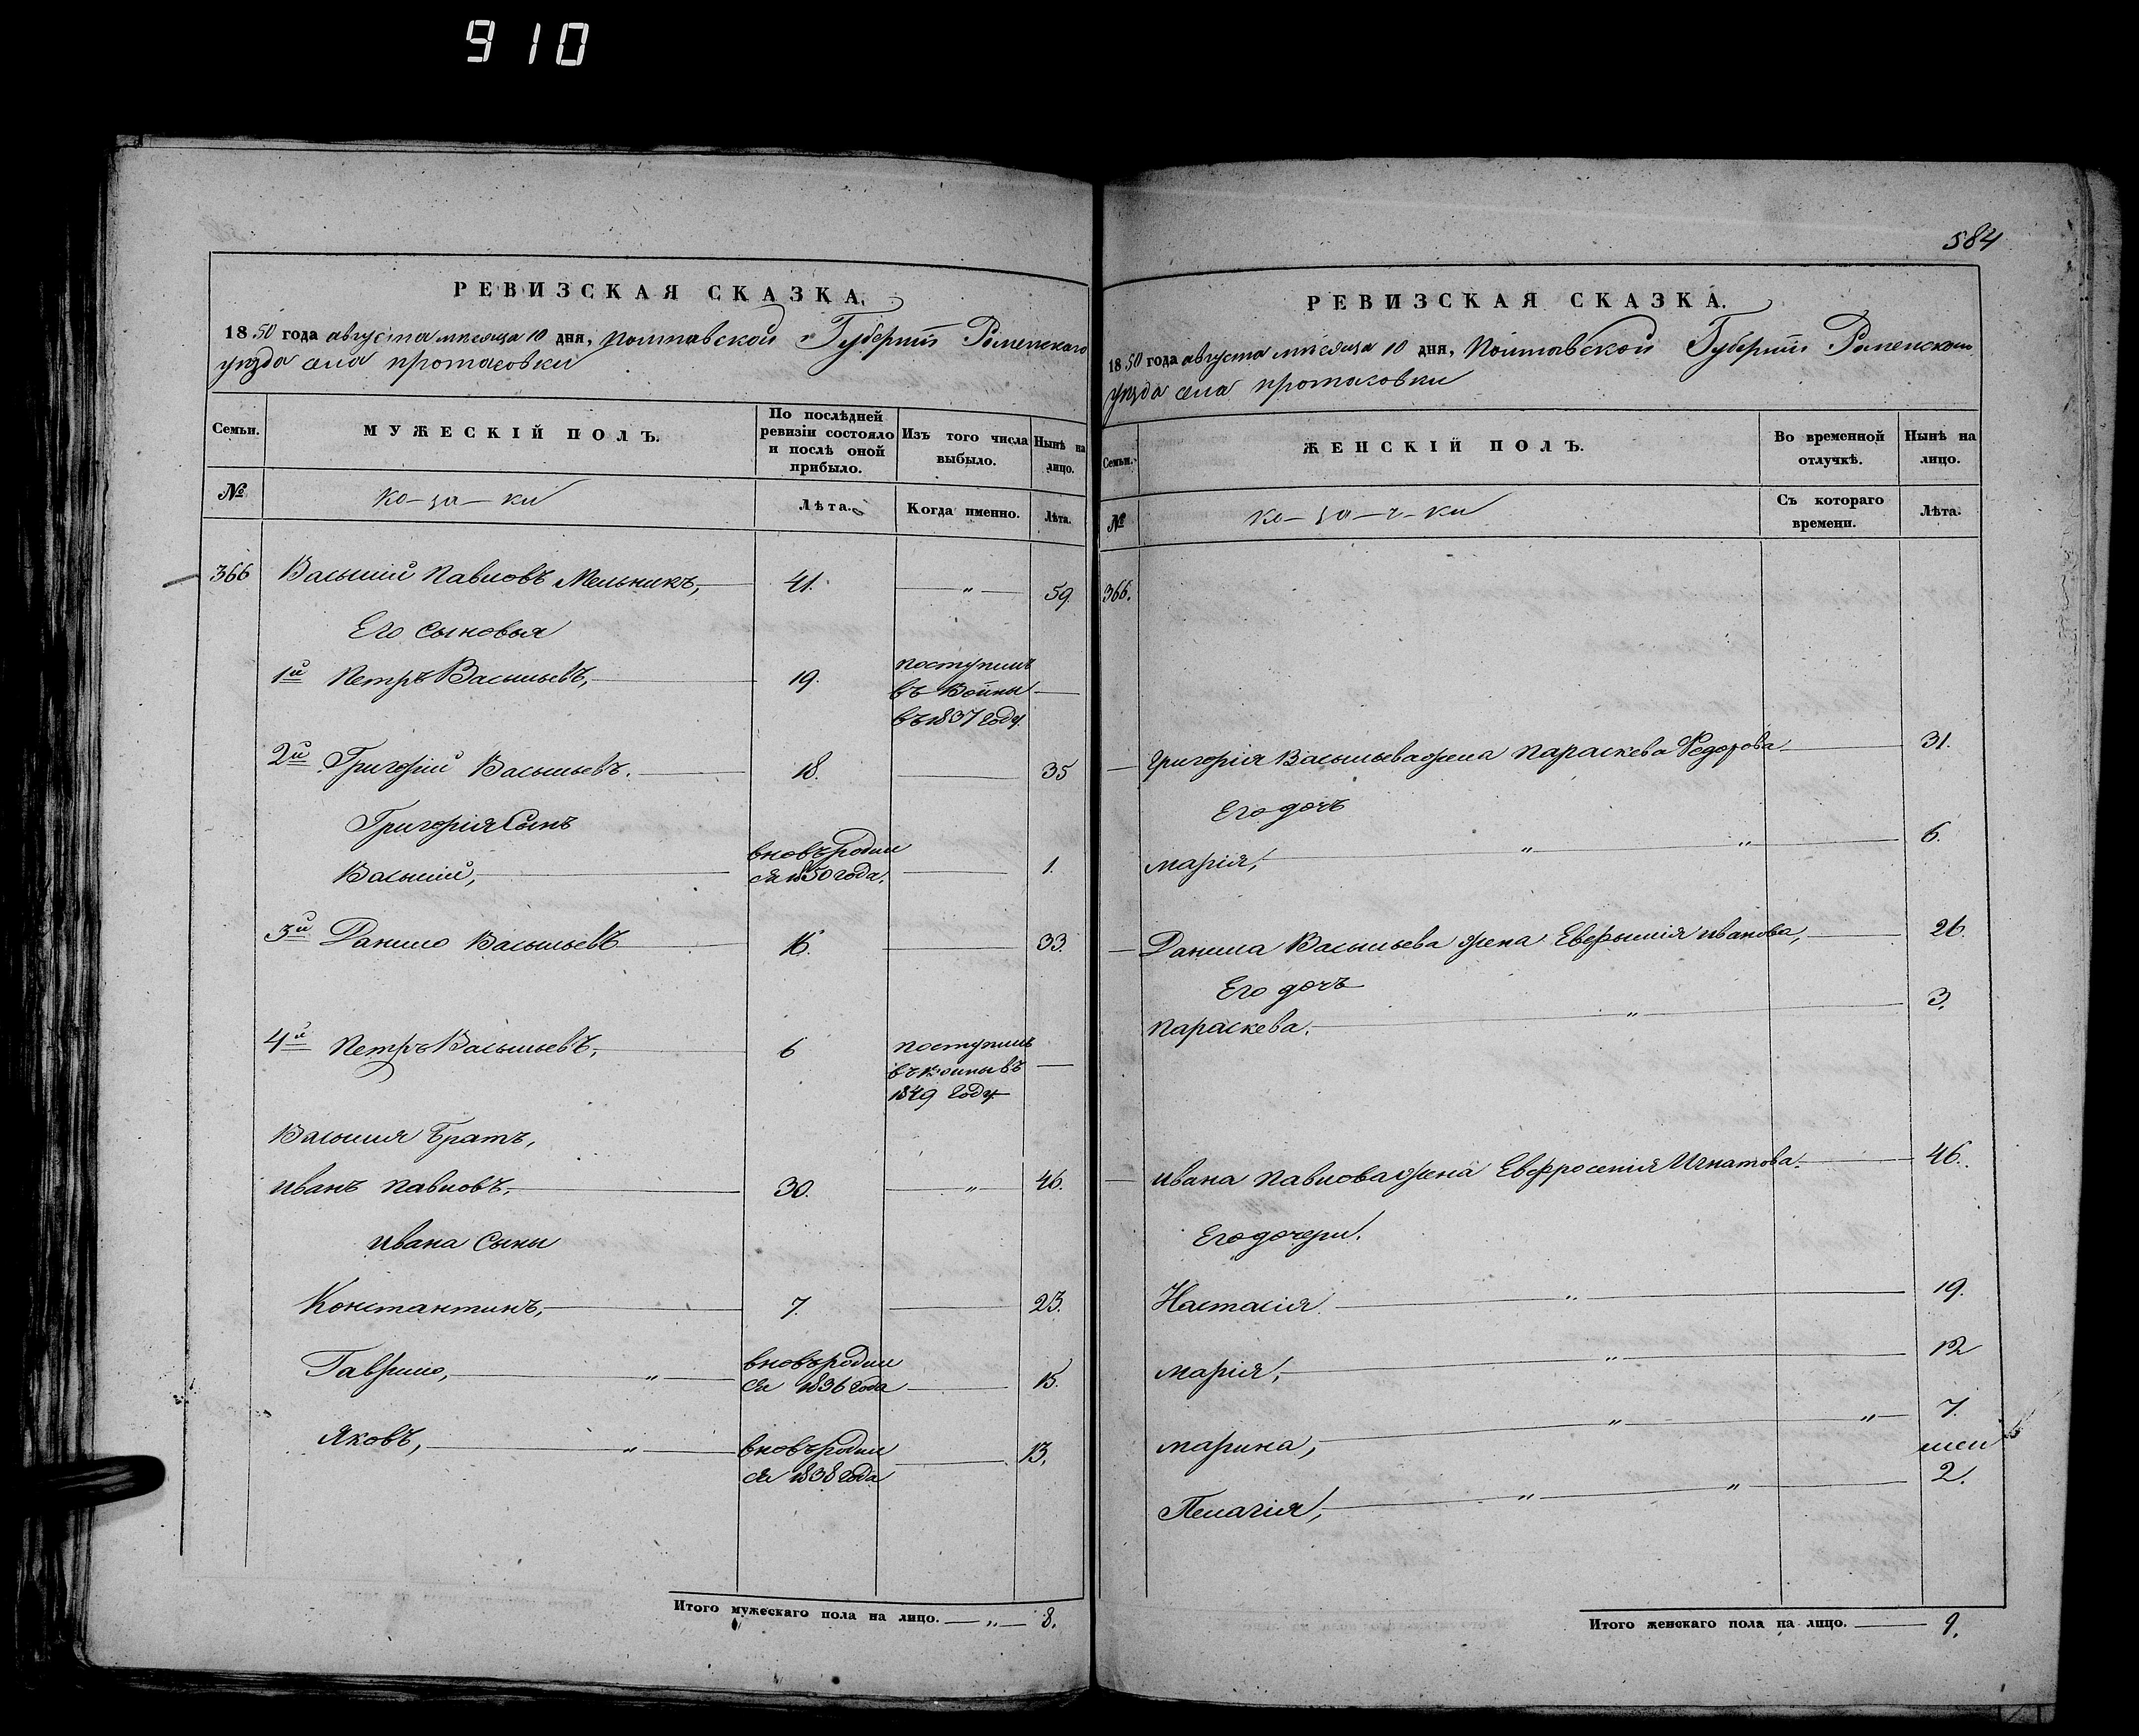 910
РЕВИЗСКАЯ СКАЗКА.
1850 года августа месяца 10 дня, Полтавской Губернiи Роменскаго
уѣзда села Протасовки
Семьи.
МУЖЕСКIЙ ПОЛЪ.
По послѣдней
ревизiи состояло
и послѣ оной
прибыло.
Изъ того числа
выбыло.
Нынѣ на
лицо.
№
Ко-за-ки
Лѣта.
Когда именно.
Лѣта.
366 Василiй Павловъ Мельникъ, 41. " 59.
Его сыновья
1й Петръ Васильевъ, 19. поступилъ
въ
въ 1837 году.
2й Григорiй Васильевъ. 18. 35
Григорiя Сынъ
Василiй, вновь родил
ся 1850 года. 1.
3й Данило Васильевъ 16. 33.
4й Петръ Васильевъ, 6 поступилъ
въ
1849 году
Василия Братъ,
Иванъ Павловъ, 30. " 46.
Ивана Сыны
Константинъ, 7. 23.
Гаврило, " вновь родил
ся 1836 года 15.
Яковъ, " вновь родил
ся 1838 года 13.
Итого мужескаго пола на лицо. " 8.
584
РЕВИЗСКАЯ СКАЗКА.
1850 года августа месяца 10 дня, Полтавской Губернiи Роменскаго
уѣзда села Протасовки
Семьи.
ЖЕНСКIЙ ПОЛЪ.
Во временной
отлучкѣ.
Нынѣ на
лицо.
№
Ко-за-ч-ки
Съ котораго
времени.
Лѣта.
366.
Григорiя Васильева жена Параскева Федорова 31.
Его дочь
Марiя, " " 6.
Данила Васильева жена Ивановa, 26.
Его дочь
Параскева. " 3.
Ивана Павлова жена Евфросенiя Игнатова. 46.
Его дочери.
Настасiя. " 19.
Марiя, " 12
Марина, " " 7.
Пелагiя, " " 2.
Итого женскаго пола на лицо. 9.